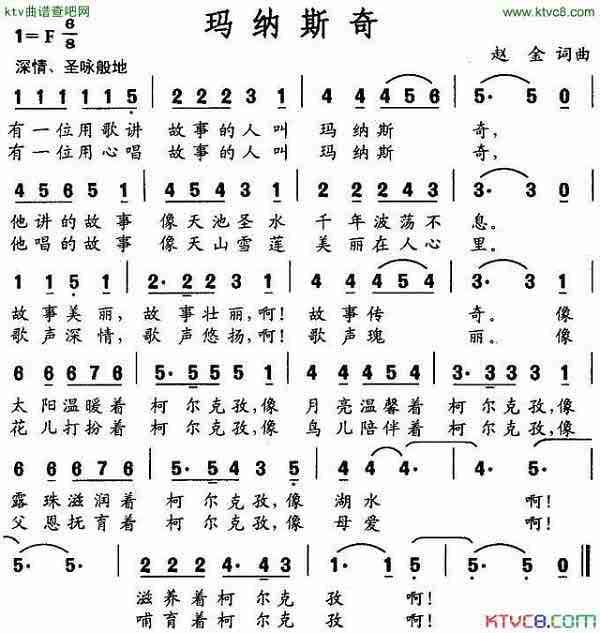 ktv曲谱查吧网
www.ktvc8.com
玛纳斯奇
1=F 6/8
赵金 词曲
深情、圣咏般地
1 1 1 1 1 5 | 2 2 2 3 1 | 4 4 4 5 6 | 5· 5 0
有一位用歌讲 故事的人叫 玛纳斯 奇,
有一位用心唱 故事的人叫 玛纳斯 奇,
4 5 6 5 1 | 4 5 4 3 1 | 2 2 2 3 4 | 3· 3 0
他讲的故事 像天池圣水 千年波荡不息。
他唱的故事 像天山雪莲 美丽在人心里。
1 1 5 1 | 2· 2 2 3 1 | 4 4 4 5 4 | 3· 3 1
故事美丽, 故事壮丽,啊! 故事传 奇。 像
歌声深情, 歌声悠扬,啊! 歌声瑰 丽。 像
6 6 6 7 6 | 5· 5 5 5 1 | 4 4 4 5 4 | 3· 3 3 3 1
太阳温暖着 柯尔克孜,像 月亮温馨着 柯尔克孜,像
花儿打扮着 柯尔克孜,像 鸟儿陪伴着 柯尔克孜,像
6 6 6 7 6 | 5· 5 3 4 5 | 3 4 4· | 6·
露珠滋润着 柯尔克孜,像 湖水 啊!
父恩抚育着 柯尔克孜,像 母爱 啊!
5· 5· | 2 2 2 4· 4 3 | 5· 5· | 5· 5 0
滋养着柯尔克 孜 啊!
哺育着柯尔克 孜 啊!
KTVC8.COM